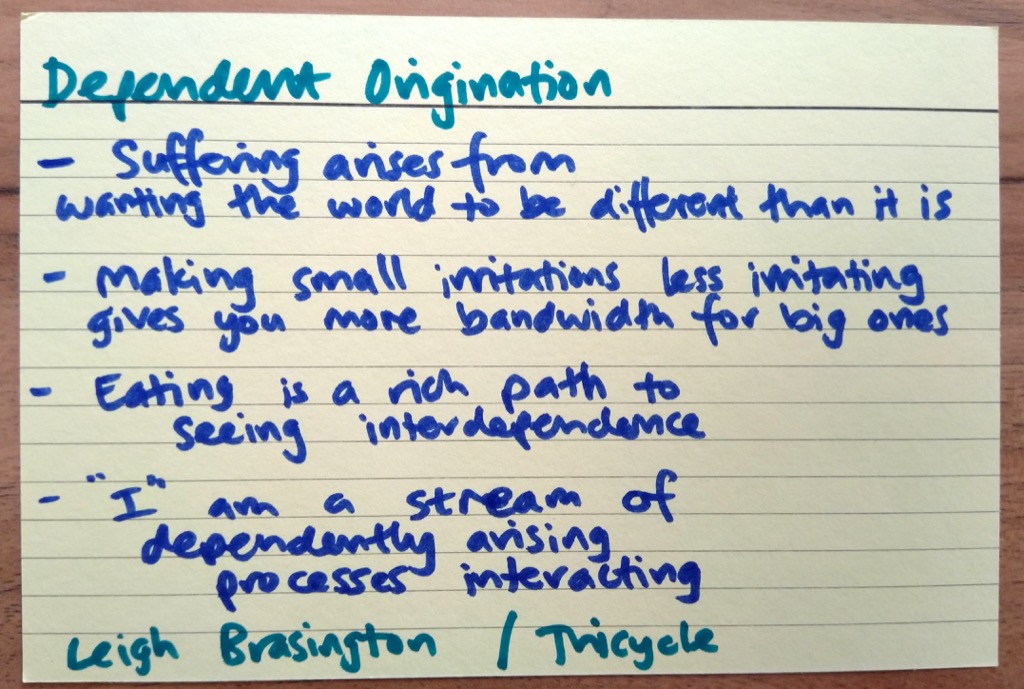 Dependent Origination
- Suffering arises from
wanting the world to be different than it is
- Making small irritations less irritating
gives you more bandwidth for big ones
- Eating is a rich path to
seeing interdependence
- "I" am a stream of
dependently arising
processes interacting
Leigh Brasington / Tricycle